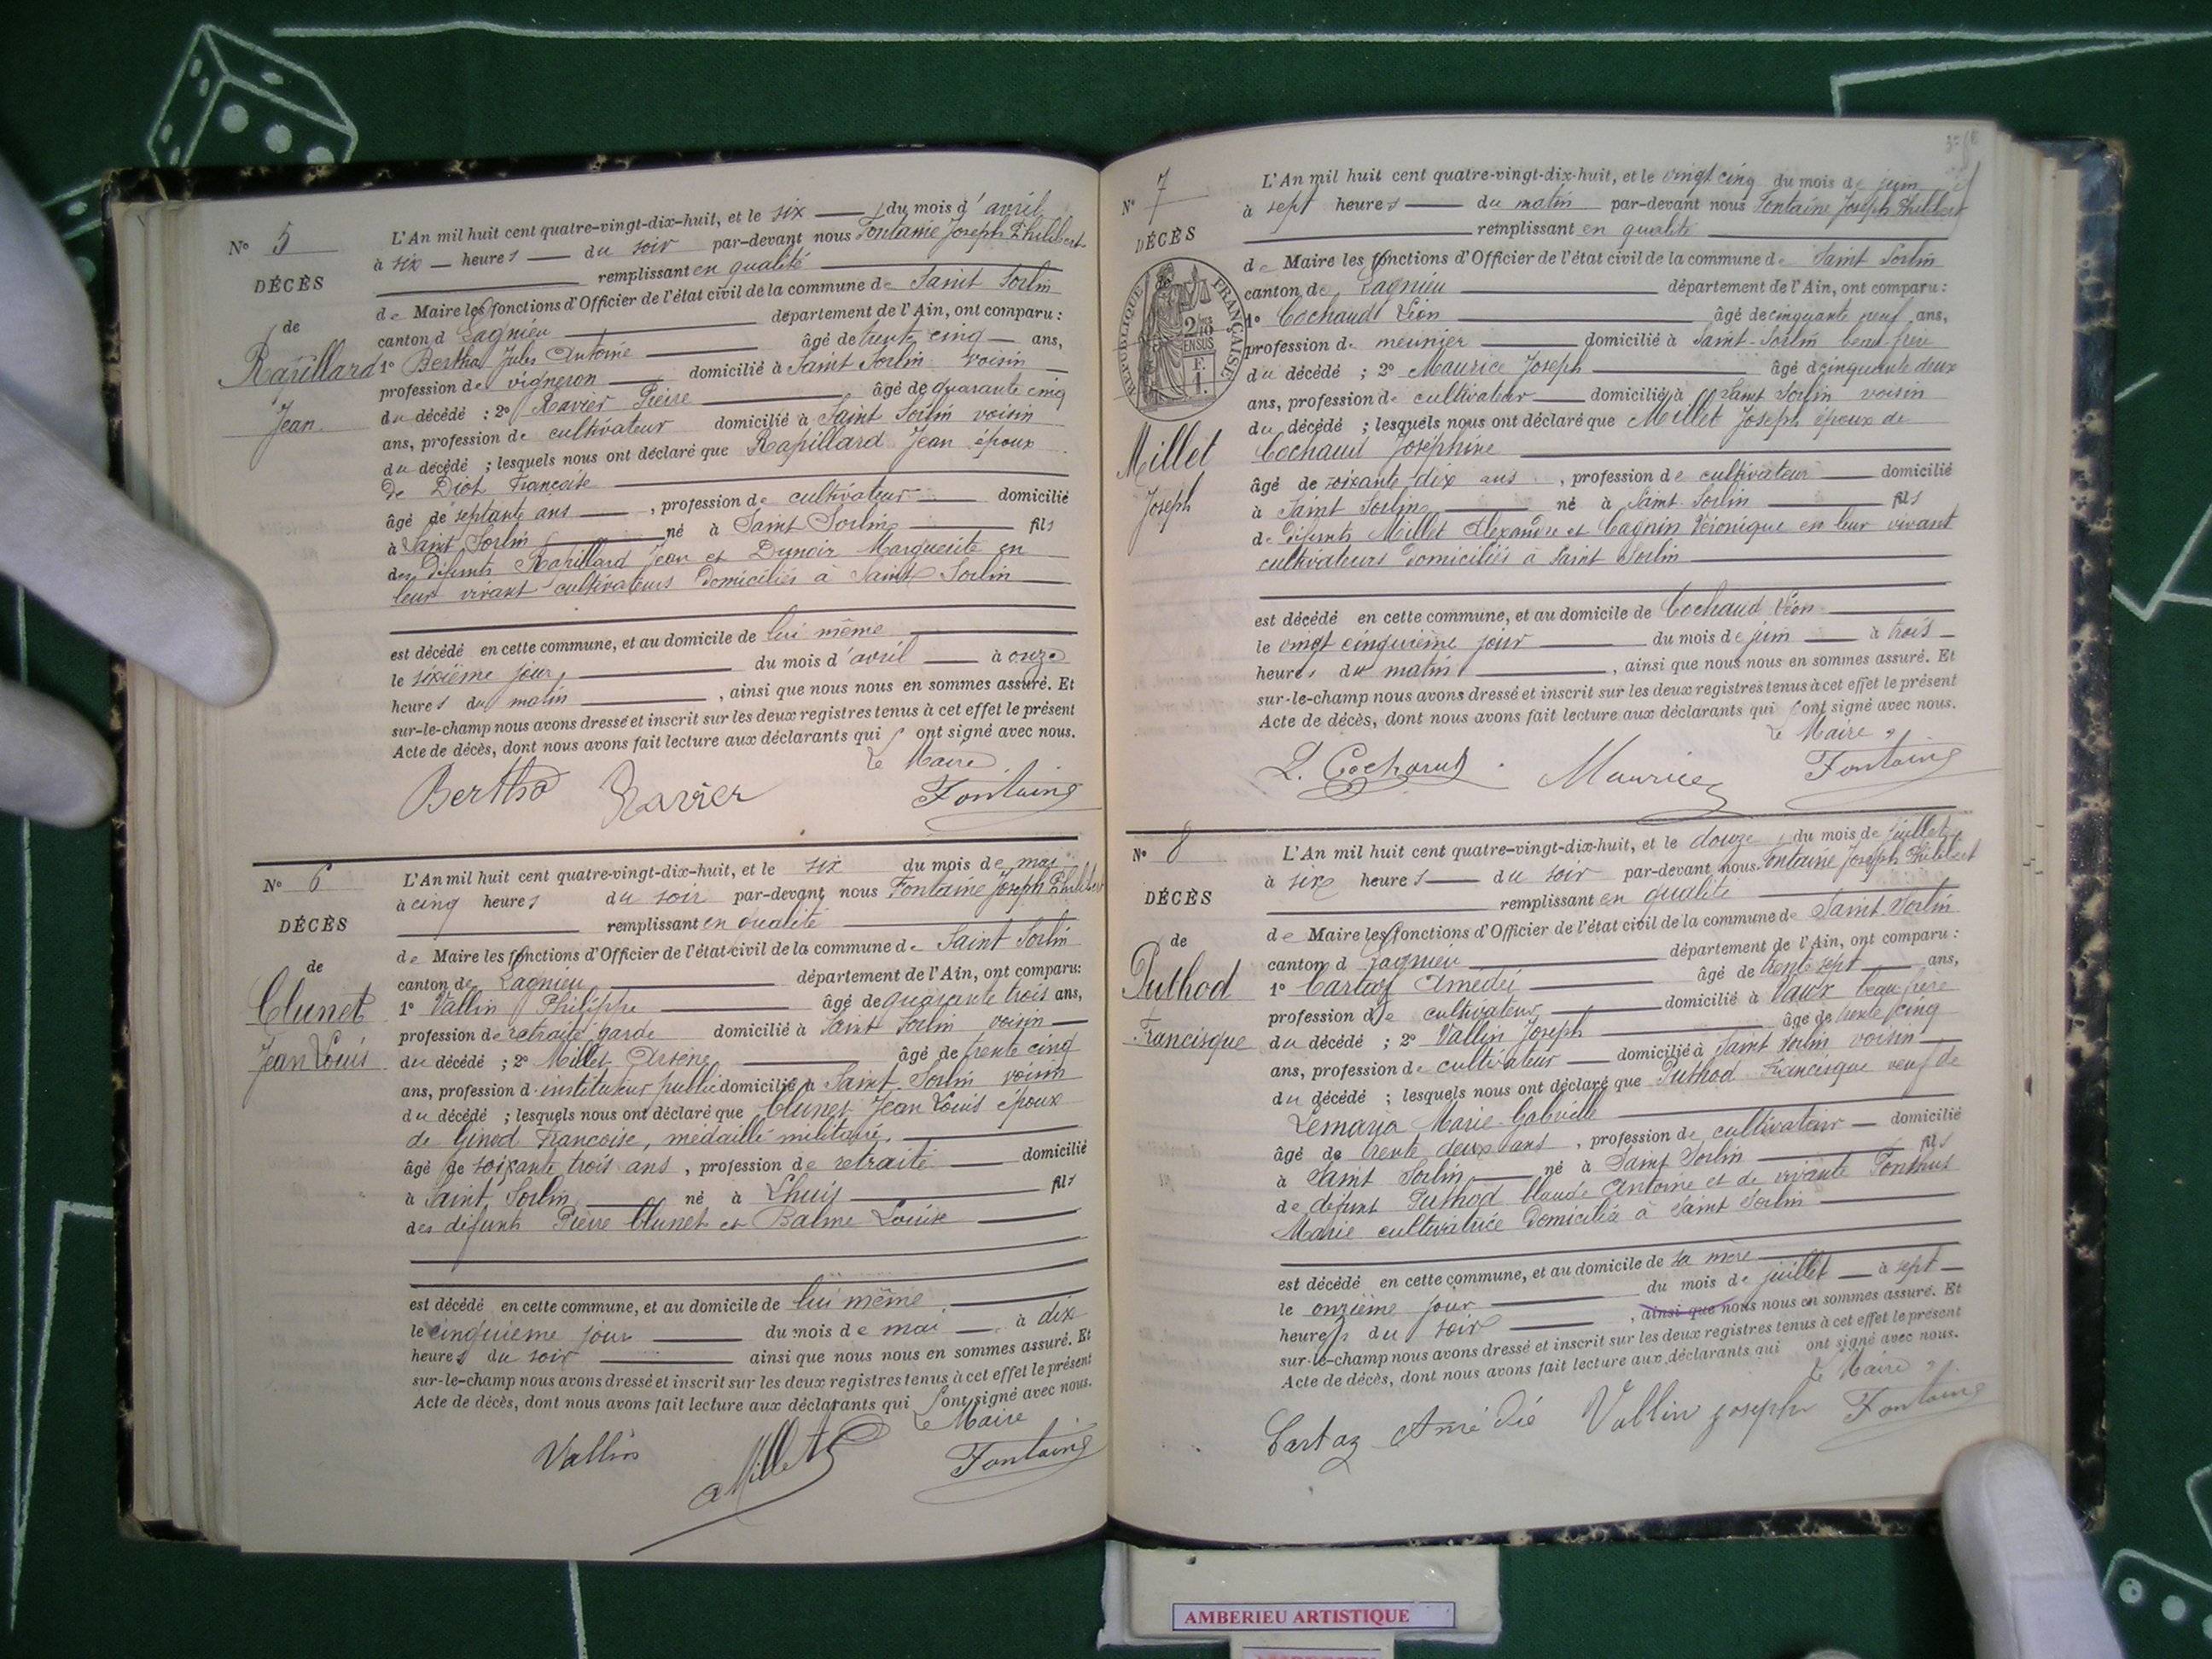 N° 5
DÉCÈS
de
Rapillard
Jean
L'An mil huit cent quatre-vingt-dix-huit, et le six du mois d'avril
à six heures du soir par-devant nous Fontaine Joseph Philibert
remplissant en qualité
de Maire les fonctions d'Officier de l'état civil de la commune de Saint Sorlin
canton d Lagnieu département de l'Ain, ont comparu :
1° Berthod Jules Antoine âgé de trente cinq ans,
profession de vigneron domicilié à Saint Sorlin voisin
du décédé : 2° Ravier Pierre âgé de quarante cinq
ans, profession de cultivateur domicilié à Saint Sorlin voisin
du décédé ; lesquels nous ont déclaré que Rapillard Jean époux
de Diot Françoise
âgé de septante ans , profession de cultivateur domicilié
à Saint Sorlin né à Saint Sorlin fils
des défunts Rapillard Jean et Dunoir Marguerite en
leur vivant cultivateurs domiciliés à Saint Sorlin
est décédé en cette commune, et au domicile de lui même
le sixième jour du mois d'avril à onze
heures du matin , ainsi que nous nous en sommes assuré. Et
sur-le-champ nous avons dressé et inscrit sur les deux registres tenus à cet effet le présent
Acte de décès, dont nous avons fait lecture aux déclarants qui ont signé avec nous.
Le Maire
Berthod Ravier Fontaine
N° 6
DÉCÈS
de
Clunet
Jean Louis
L'An mil huit cent quatre-vingt-dix-huit, et le six du mois de mai
à cinq heures du soir par-devant nous Fontaine Joseph Philibert
remplissant en qualité
de Maire les fonctions d'Officier de l'état-civil de la commune de Saint Sorlin
canton de Lagnieu département de l'Ain, ont comparu:
1° Vallin Philippe âgé de quarante trois ans,
profession de retraité garde domicilié à Saint Sorlin voisin
du décédé ; 2° Millet Arsène âgé de trente cinq
ans, profession d'instituteur public domicilié à Saint Sorlin voisin
du décédé ; lesquels nous ont déclaré que Clunet Jean Louis époux
de Ginod Françoise, médaillé militaire,
âgé de soixante trois ans , profession de retraité domicilié
à Saint Sorlin né à Lhuis fils
des défunts Pierre Clunet et Balme Louise
est décédé en cette commune, et au domicile de lui même
le cinquième jour du mois de mai à dix
heures du soir ainsi que nous nous en sommes assuré. Et
sur-le-champ nous avons dressé et inscrit sur les deux registres tenus à cet effet le présent
Acte de décès, dont nous avons fait lecture aux déclarants qui ont signé avec nous.
Le Maire
Vallin AMillet Fontaine
N° 7
DÉCÈS
RÉPUBLIQUE FRANÇAISE
2/10 EN SUS
F.
1.
Millet
Joseph
L'An mil huit cent quatre-vingt-dix-huit, et le vingt cinq du mois de juin
à sept heures du matin par-devant nous Fontaine Joseph Philibert
remplissant en qualité
de Maire les fonctions d'Officier de l'état civil de la commune de Saint Sorlin
canton de Lagnieu département de l'Ain, ont comparu :
1° Cochaud Léon âgé de cinquante neuf ans,
profession de meunier domicilié à Saint-Sorlin beau frère
du décédé ; 2° Maurice Joseph âgé de cinquante deux
ans, profession de cultivateur domicilié à Saint Sorlin voisin
du décédé ; lesquels nous ont déclaré que Millet Joseph époux de
Cochaud Joséphine
âgé de soixante dix ans , profession de cultivateur domicilié
à Saint Sorlin né à Saint-Sorlin fils
de défunts Millet Alexandre et Cagnin Véronique en leur vivant
cultivateurs domiciliés à Saint Sorlin
est décédé en cette commune, et au domicile de Cochaud Léon
le vingt cinquième jour du mois de juin à trois
heures du matin , ainsi que nous nous en sommes assuré. Et
sur-le-champ nous avons dressé et inscrit sur les deux registres tenus à cet effet le présent
Acte de décès, dont nous avons fait lecture aux déclarants qui ont signé avec nous.
Le Maire
L. Cochaud Maurice Fontaine
N° 8
DÉCÈS
de
Puthod
Francisque
L'An mil huit cent quatre-vingt-dix-huit, et le douze du mois de juillet
à six heures du soir par-devant nous Fontaine Joseph Philibert
remplissant en qualité
de Maire les fonctions d'Officier de l'état civil de la commune de Saint Sorlin
canton d Lagnieu département de l'Ain, ont comparu :
1° Cartaz Amédée âgé de trente sept ans,
profession de cultivateur domicilié à Vaux beau frère
du décédé ; 2° Vallin Joseph âgé de trente cinq
ans, profession de cultivateur domicilié à Saint Sorlin voisin
du décédé ; lesquels nous ont déclaré que Puthod Francisque veuf de
Marie Gabrielle
âgé de trente deux ans , profession de cultivateur domicilié
à Saint Sorlin né à Saint Sorlin fils
de défunt Puthod Claude Antoine et de vivante
Marie cultivatrice domiciliée à Saint Sorlin
est décédé en cette commune, et au domicile de sa mère
le onzième jour du mois de juillet à sept
heures du soir , ainsi que nous nous en sommes assuré. Et
sur-le-champ nous avons dressé et inscrit sur les deux registres tenus à cet effet le présent
Acte de décès, dont nous avons fait lecture aux déclarants qui ont signé avec nous.
Le Maire
Cartaz Amédée Vallin joseph Fontaine
AMBERIEU ARTISTIQUE